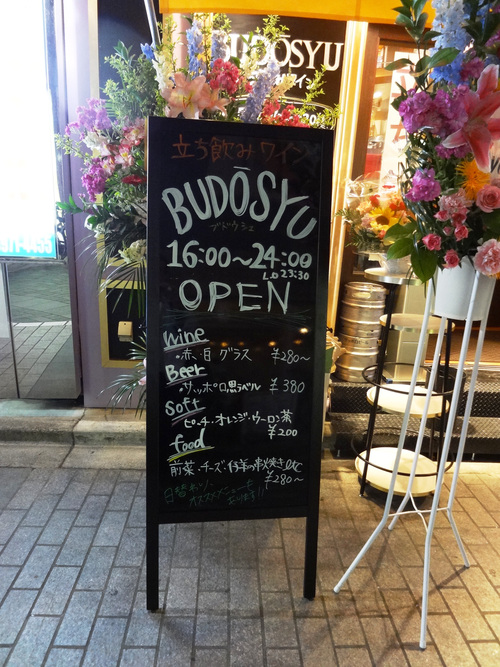 BUDŌSYU
立ち飲みワイン
BUDŌSYU
ブドウシュ
16:00〜24:00
L.O 23:30
OPEN
Wine
・赤、白 グラス ¥280〜
Beer
・サッポロ黒ラベル ¥380
Soft
ピーチ・オレンジ・ウーロン茶
¥200
food
前菜・チーズ 仔羊の串焼き etc
¥280〜
日替わり、
オススメメニューも
あります!!